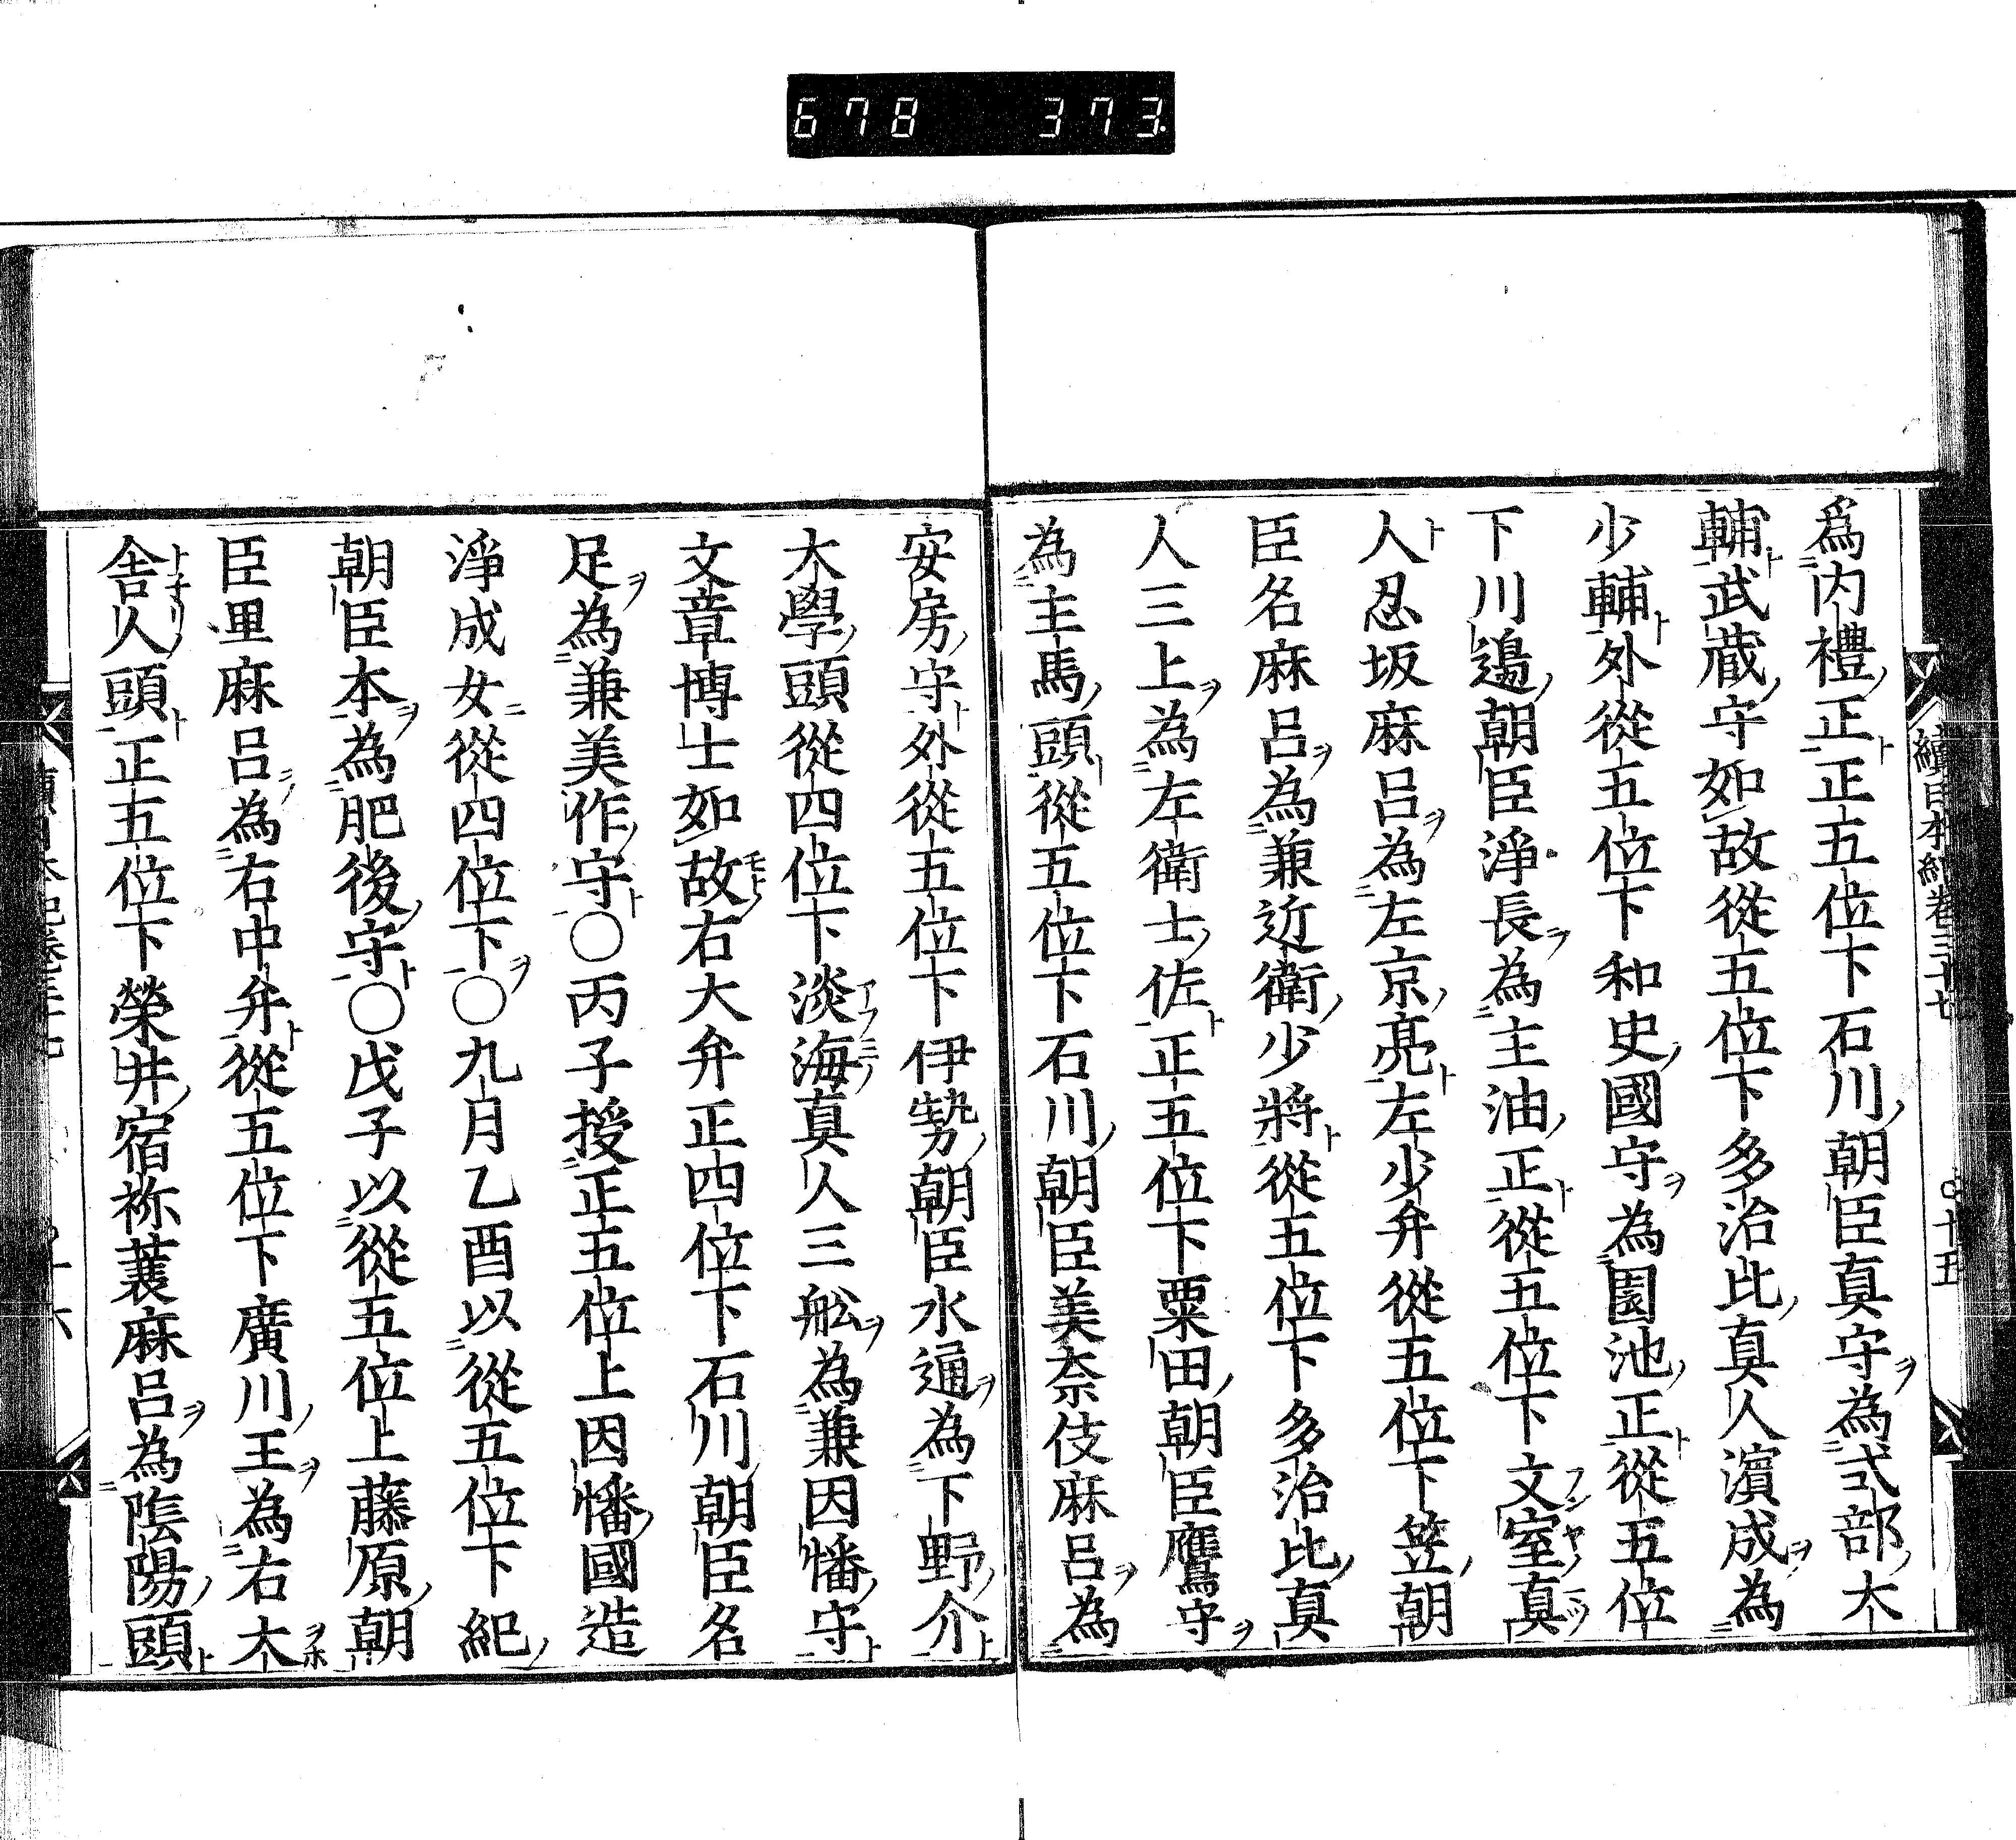 678 373
續日本紀卷三十七 十五
爲内禮正正五位下石川朝臣真守為式部大
輔武蔵守如故從五位下多治比真人濵成為
少輔外從五位下和史國守為園池正從五位
下川邊朝臣淨長為主油正從五位下文室真
人忍坂麻呂為左京亮左少弁從五位下笠朝
臣名麻呂為兼近衛少將從五位下多治比真
人三上為左衛士佐正五位下粟田朝臣鷹守
為主馬頭從五位下石川朝臣美奈伎麻呂為
安房守外從五位下伊勢朝臣水通為下野介
大學頭從四位下淡海真人三舩為兼因幡守
文章博士如故右大弁正四位下石川朝臣名
足為兼美作守〇丙子授正五位上因幡國造
淨成女從四位下〇九月乙酉以從五位下紀
朝臣本為肥後守〇戊子以從五位上藤原朝
臣里麻呂為右中弁從五位下廣川王為右大
舎人頭正五位下榮井宿祢蓑麻呂為陰陽頭